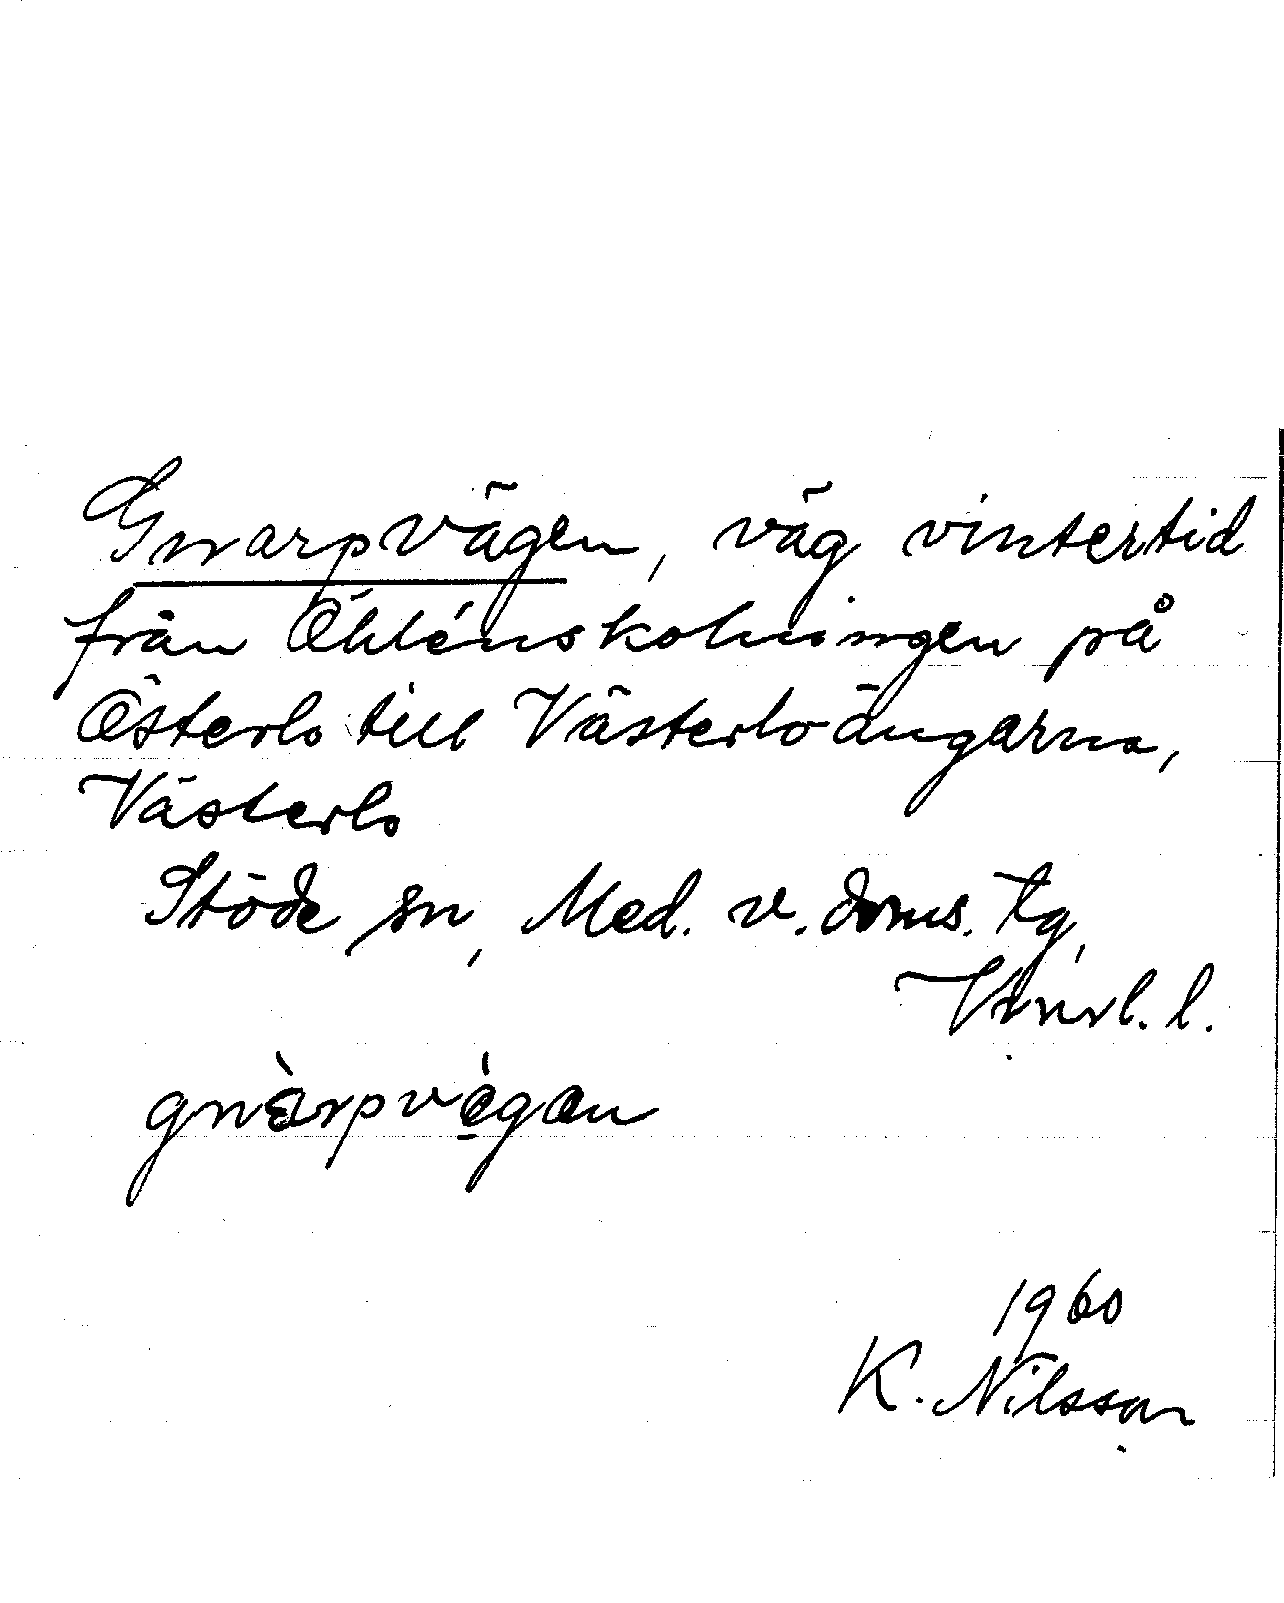 Gnarpvägen, väg vintertid
från Öhlénskolningen på
Österlo till Västerloängarna,
Västerlo
Stöde sn, Med. v. doms. tg,
l.
gnàrpvè̱gæn
1960
K. Nilsson